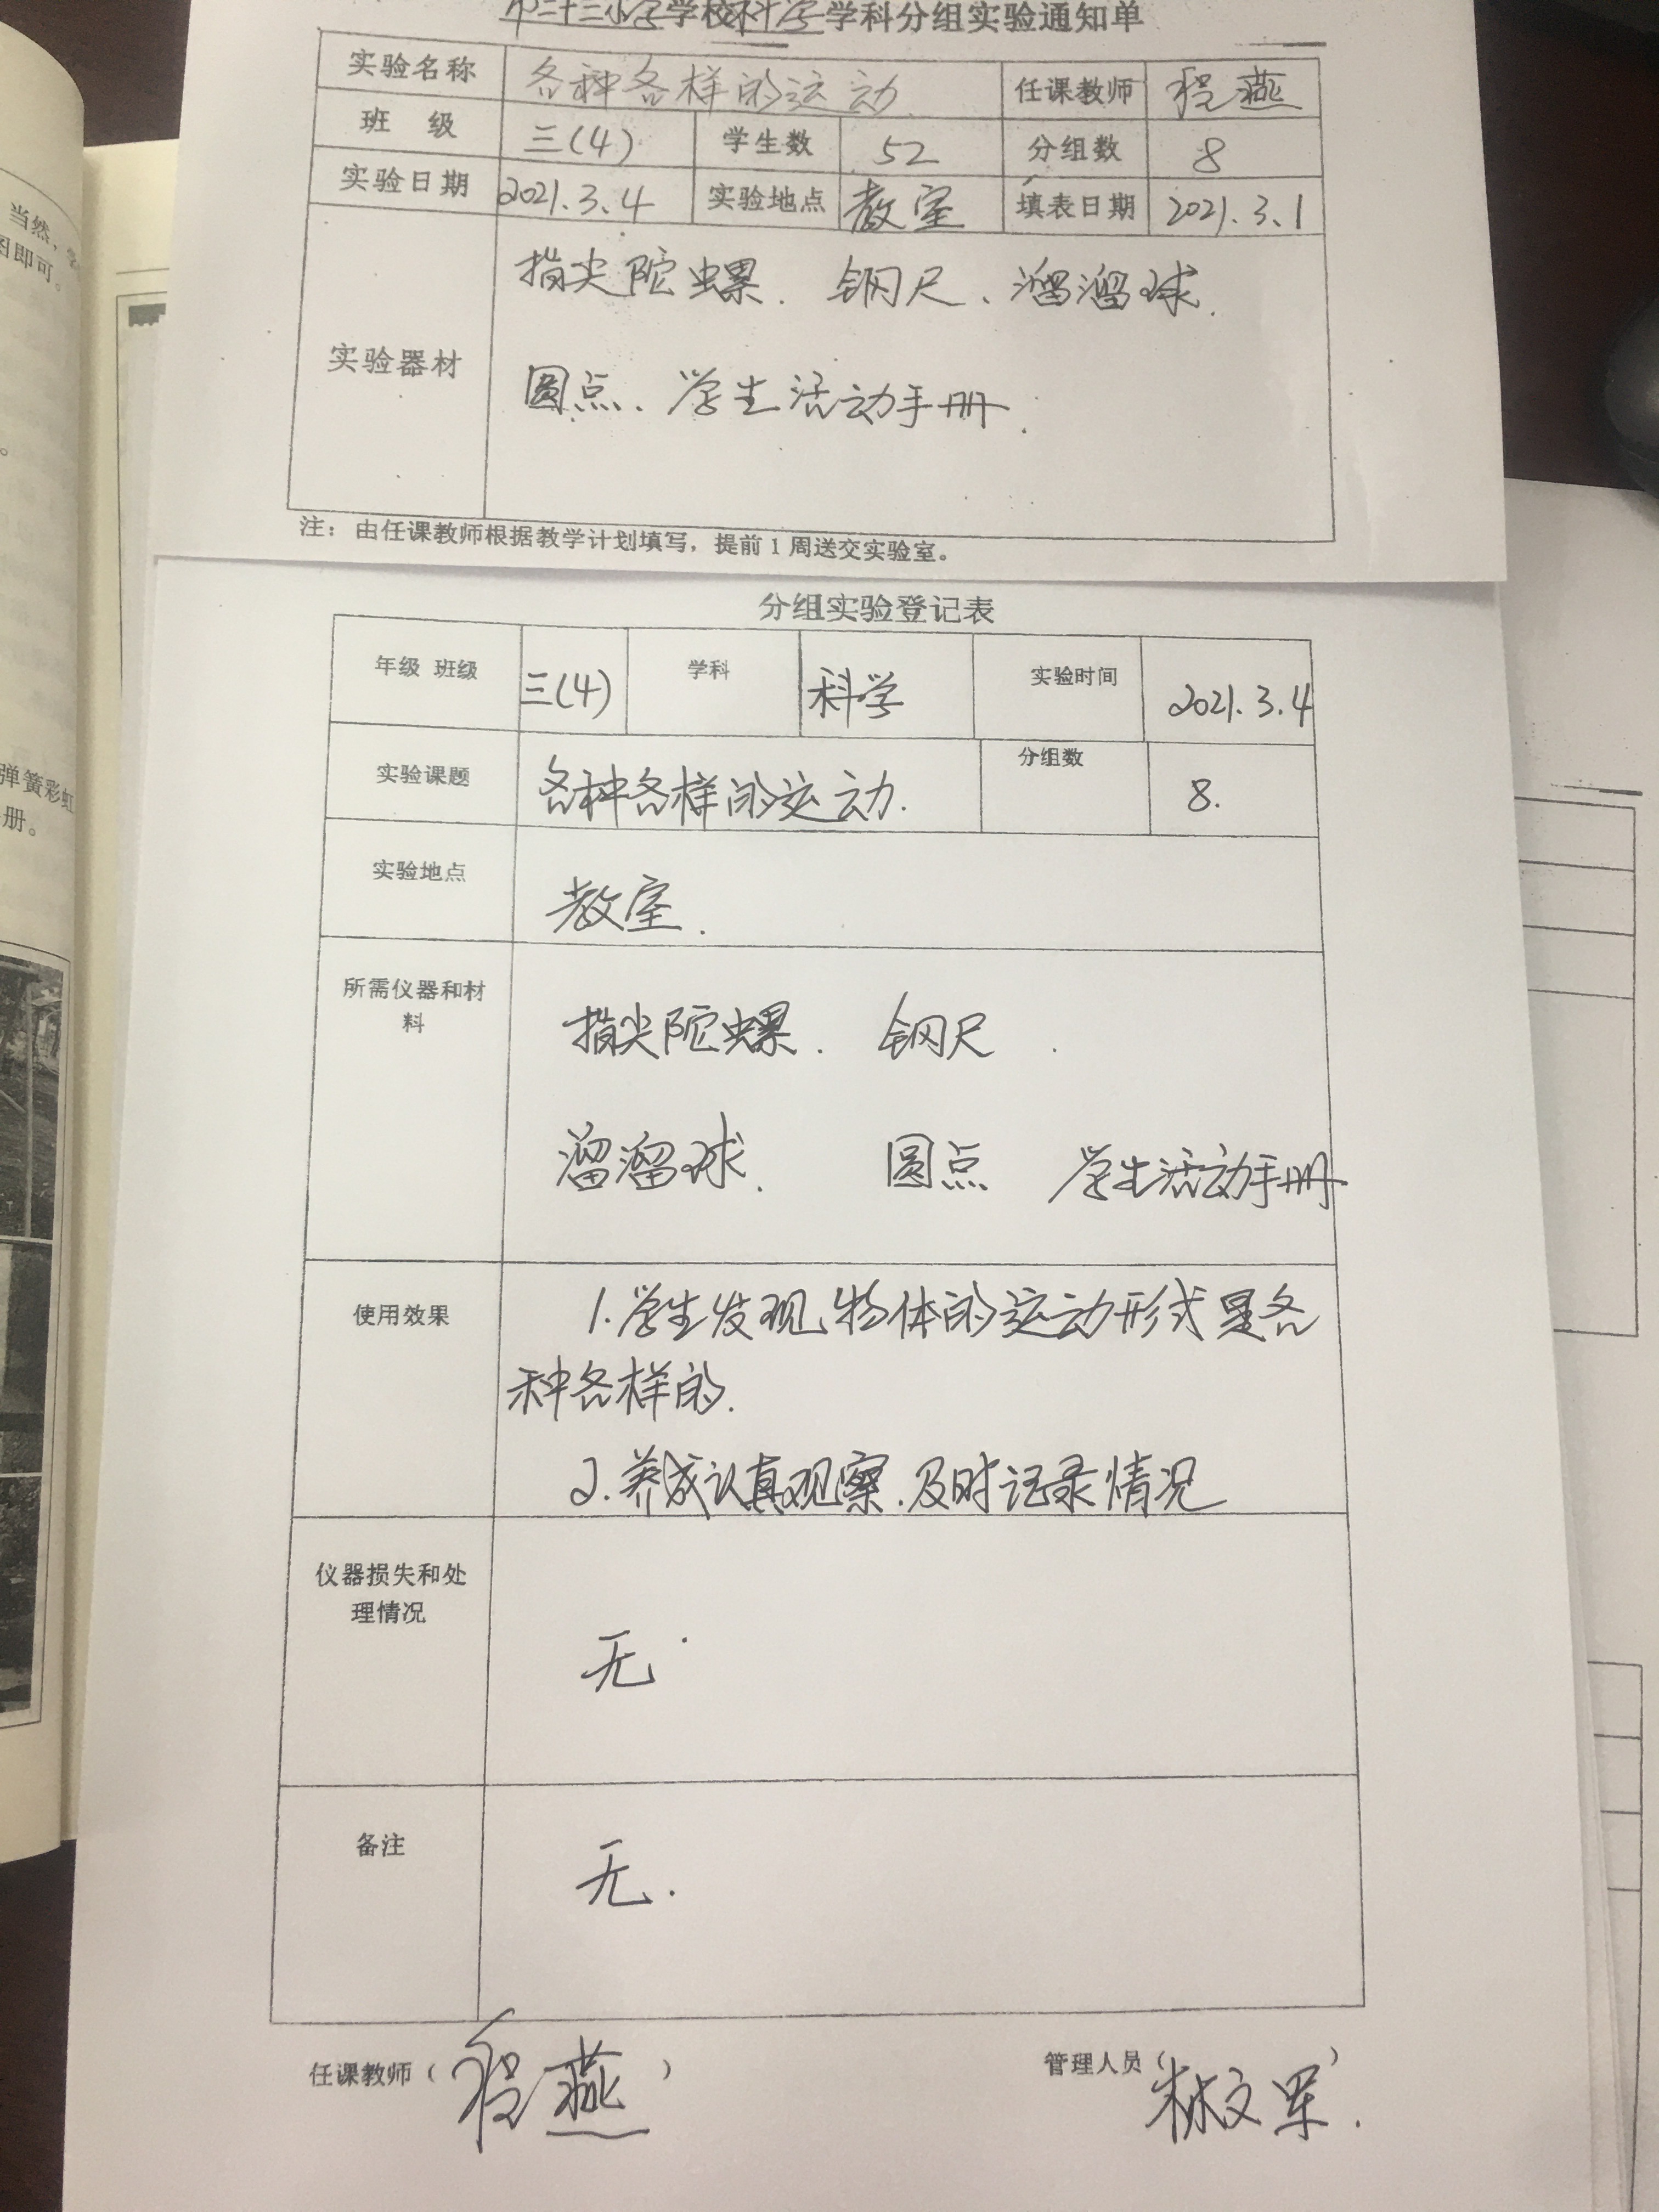 二十三小学学校科学学科分组实验通知单
实验名称 各种各样的运动 任课教师 程燕
班 级 三(4) 学生数 52 分组数 8
实验日期 2021.3.4 实验地点 教室 填表日期 2021.3.1
实验器材 指尖陀螺. 钢尺、溜溜球.
圆点、学生活动手册.
注：由任课教师根据教学计划填写，提前1周送交实验室。
分组实验登记表
年级 班级 三(4) 学科 科学 实验时间 2021.3.4
实验课题 各种各样的运动. 分组数 8.
实验地点 教室.
所需仪器和材
料
指尖陀螺. 钢尺.
溜溜球. 圆点 学生活动手册
使用效果 1.学生发现物体的运动形式是各
种各样的.
2.养成认真观察.及时记录情况
仪器损失和处
理情况
无.
备注 无.
任课教师（程燕） 管理人员（林文军）.
当然，
图即可。
弹簧彩虹
册。